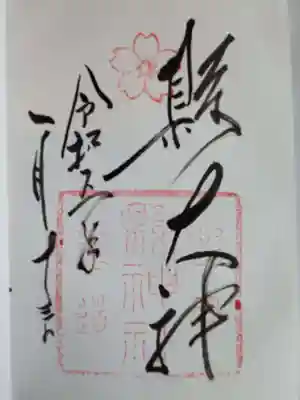 縣大神
令和五年
一月十三日
縣神社